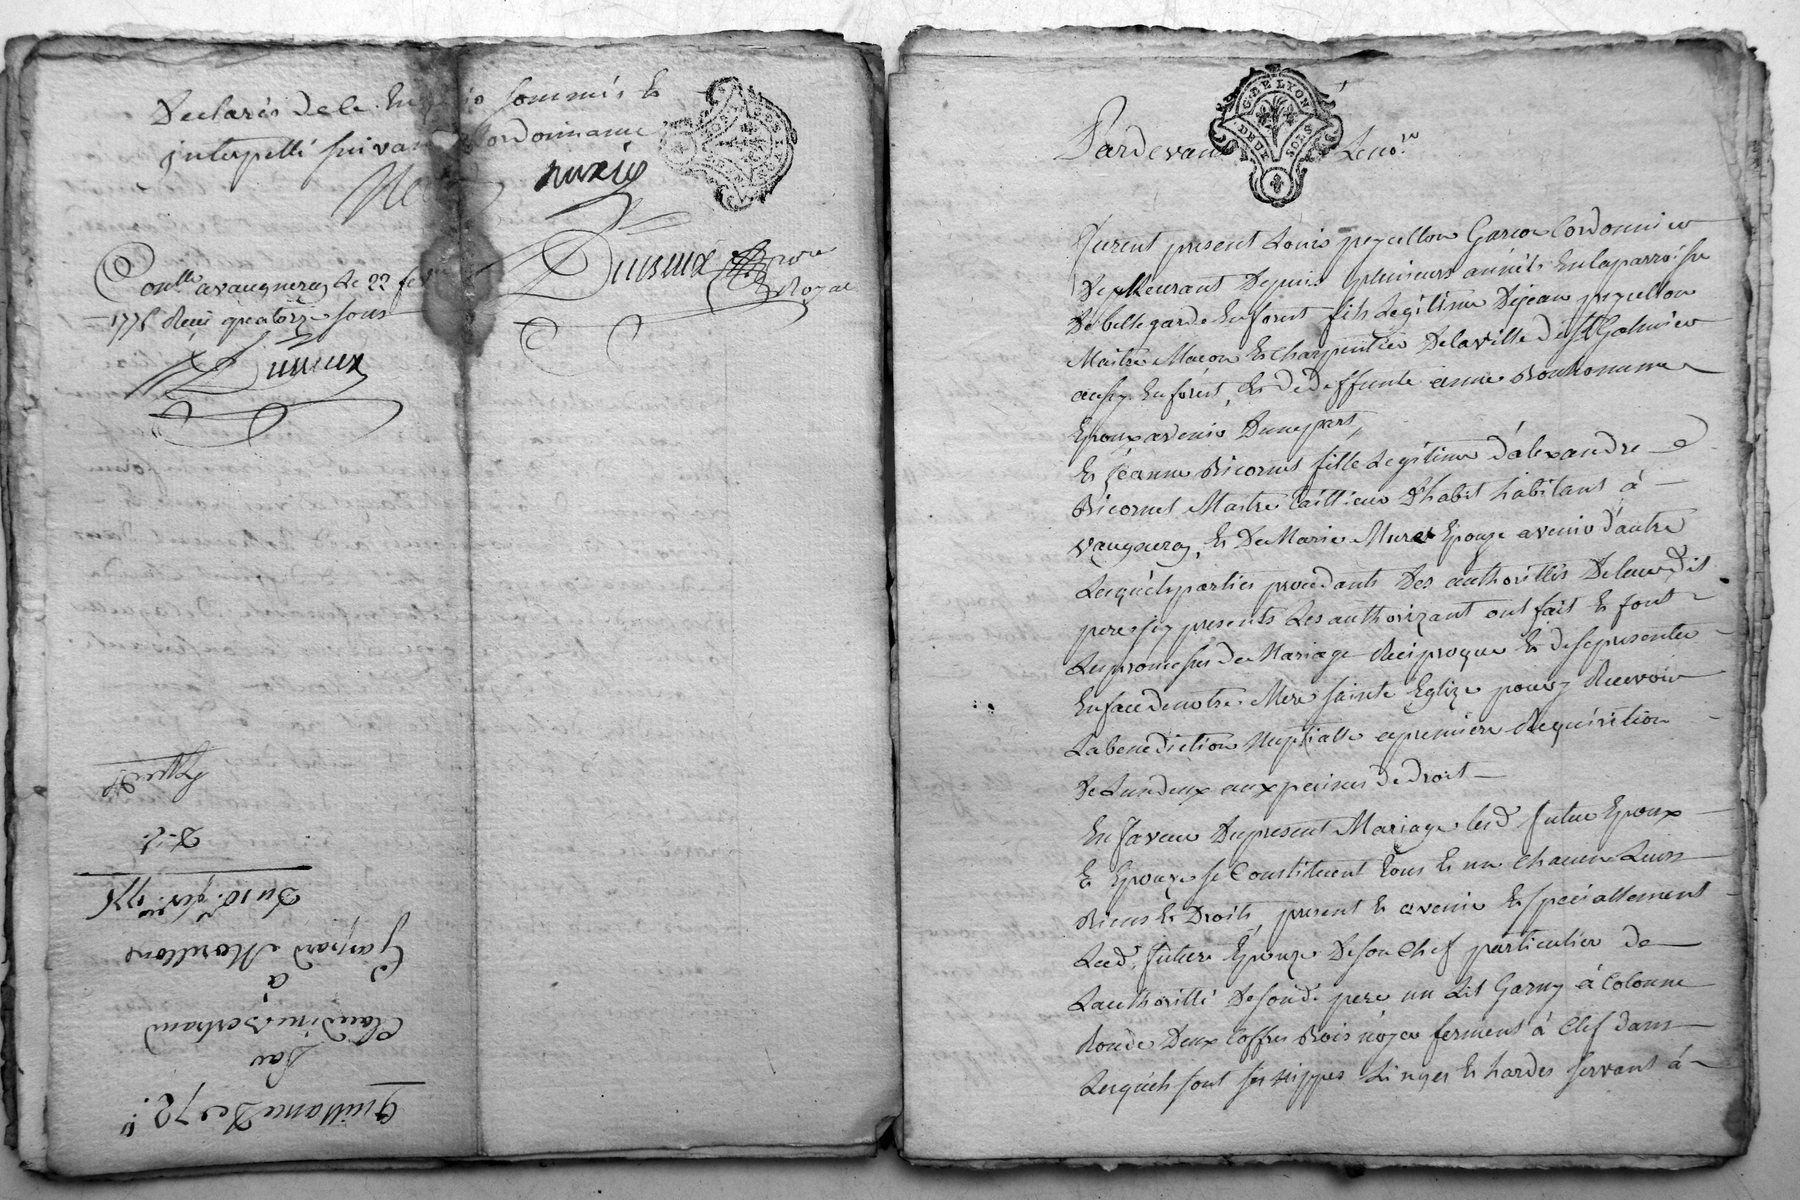 Declarés de le Enquis sommés &
interpellé suivant L'ordonnance
nuzié
Duvieux
Royal
Conllé a vaugneray Le 22 fev
1776 Reçu quatorze sous
Duvieux
Expedié
D. f.
Du 18e fev. 1776
Gaspard Morillon
à
Claudine Bertrand
Par
Quittance De 72.ll
G. DE LYON
DEUX SOLS
Pardevant Le no.re
Furent present Louis peyzellon Garcon Cordonnier
Demeurant Depuis plusieurs années En la parroisse
De bellegarde En forest fils Legitime De jean peyzellon
Maitre Macon & charpentier De la ville de st Galmier
aussy En forest, & de deffunte anne Bonhomme
Epoux avenir Dune part,
Et jeanne Bicornet fille Legitime d'alexandre
Bicornet Maitre tailleur d'habit habitant à
vaugneray, & De Marie Muret Epouze avenir d'autre
Lesquels parties procedants des authorittés De leurs dit
pere icy presents Les authorizant ont fait & font
Les promesses de Mariage Reciproque & de se presenter
En face de notre Mere sainte Eglize pour y Recevoir
La benediction Nuptialle a premiere Requisition
De Lun deux aux peines de droit
En faveur Du present Mariage les d. futur Epoux
& Epouze se Constituent tous & un chacun Leurs
Biens & Droits, present & avenir & speciallement
Lad. future Epouze De son chef particulier de
Lauthoritté de sond. pere un Lit Garny à Colonne
Ronde Deux Coffres Bois noyer fermant à Clef dans
Lesquels sont ses nippes Linges & hardes servant à